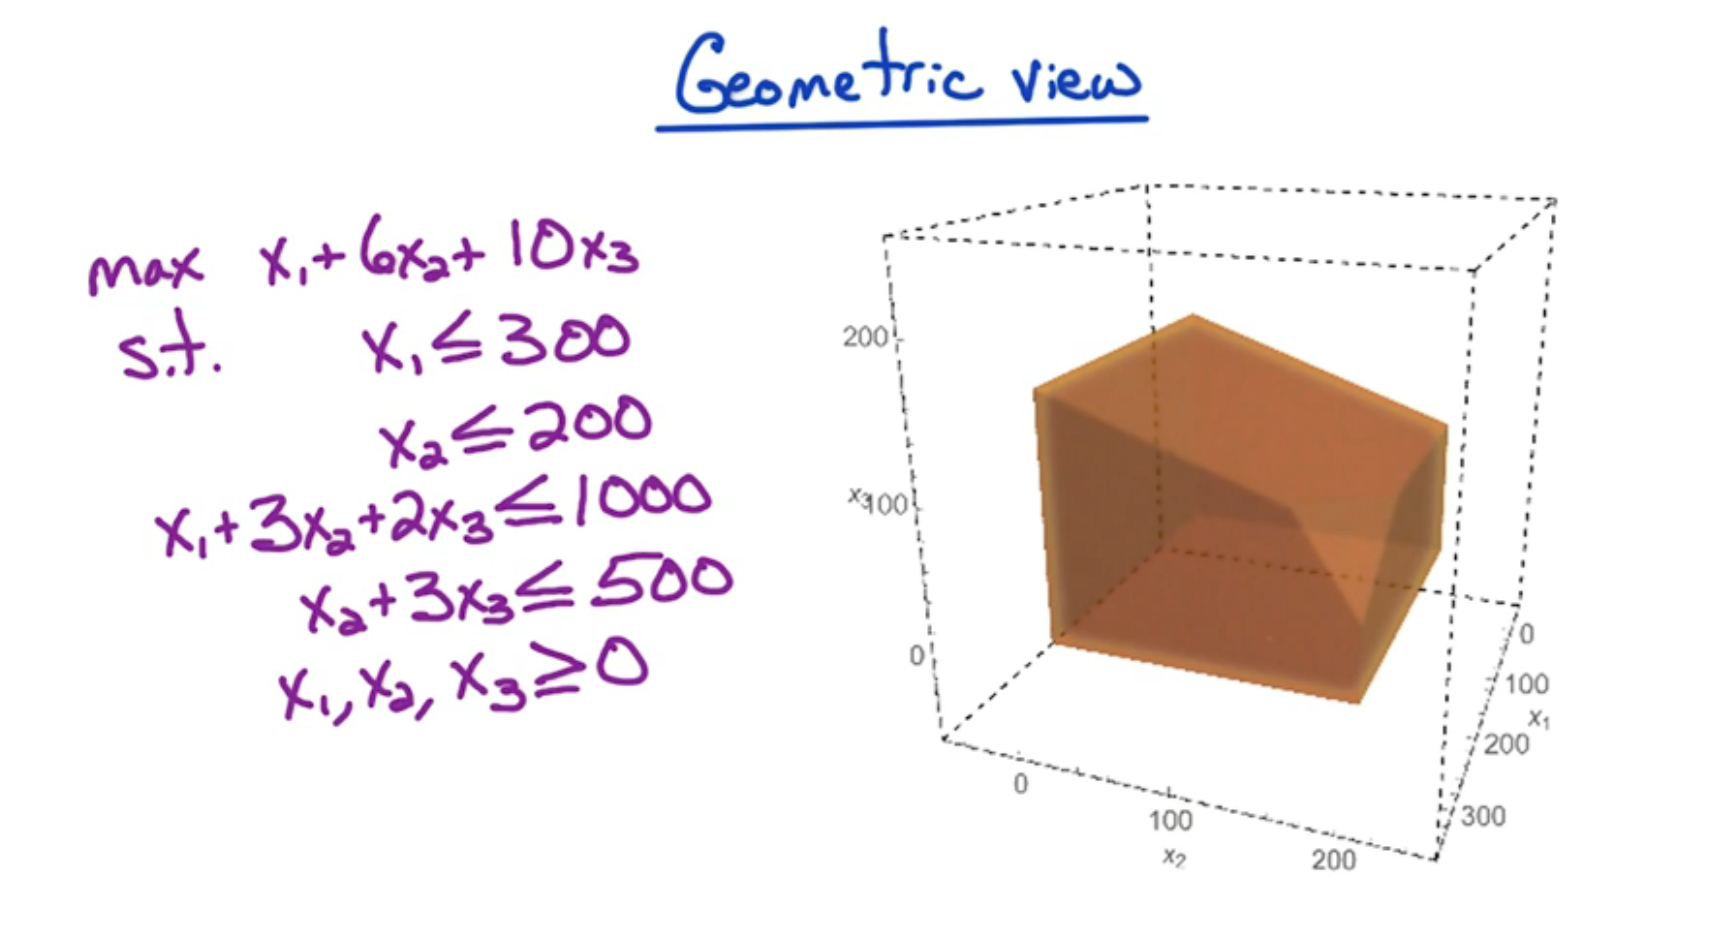 Geometric view
max x₁+6x₂+10x₃
s.t. x₁≤300
x₂≤200
x₁+3x₂+2x₃≤1000
x₂+3x₃≤500
x₁,x₂,x₃≥0
200
x₃
100
0
0
100
x₂
200
0
100
x₁
200
300